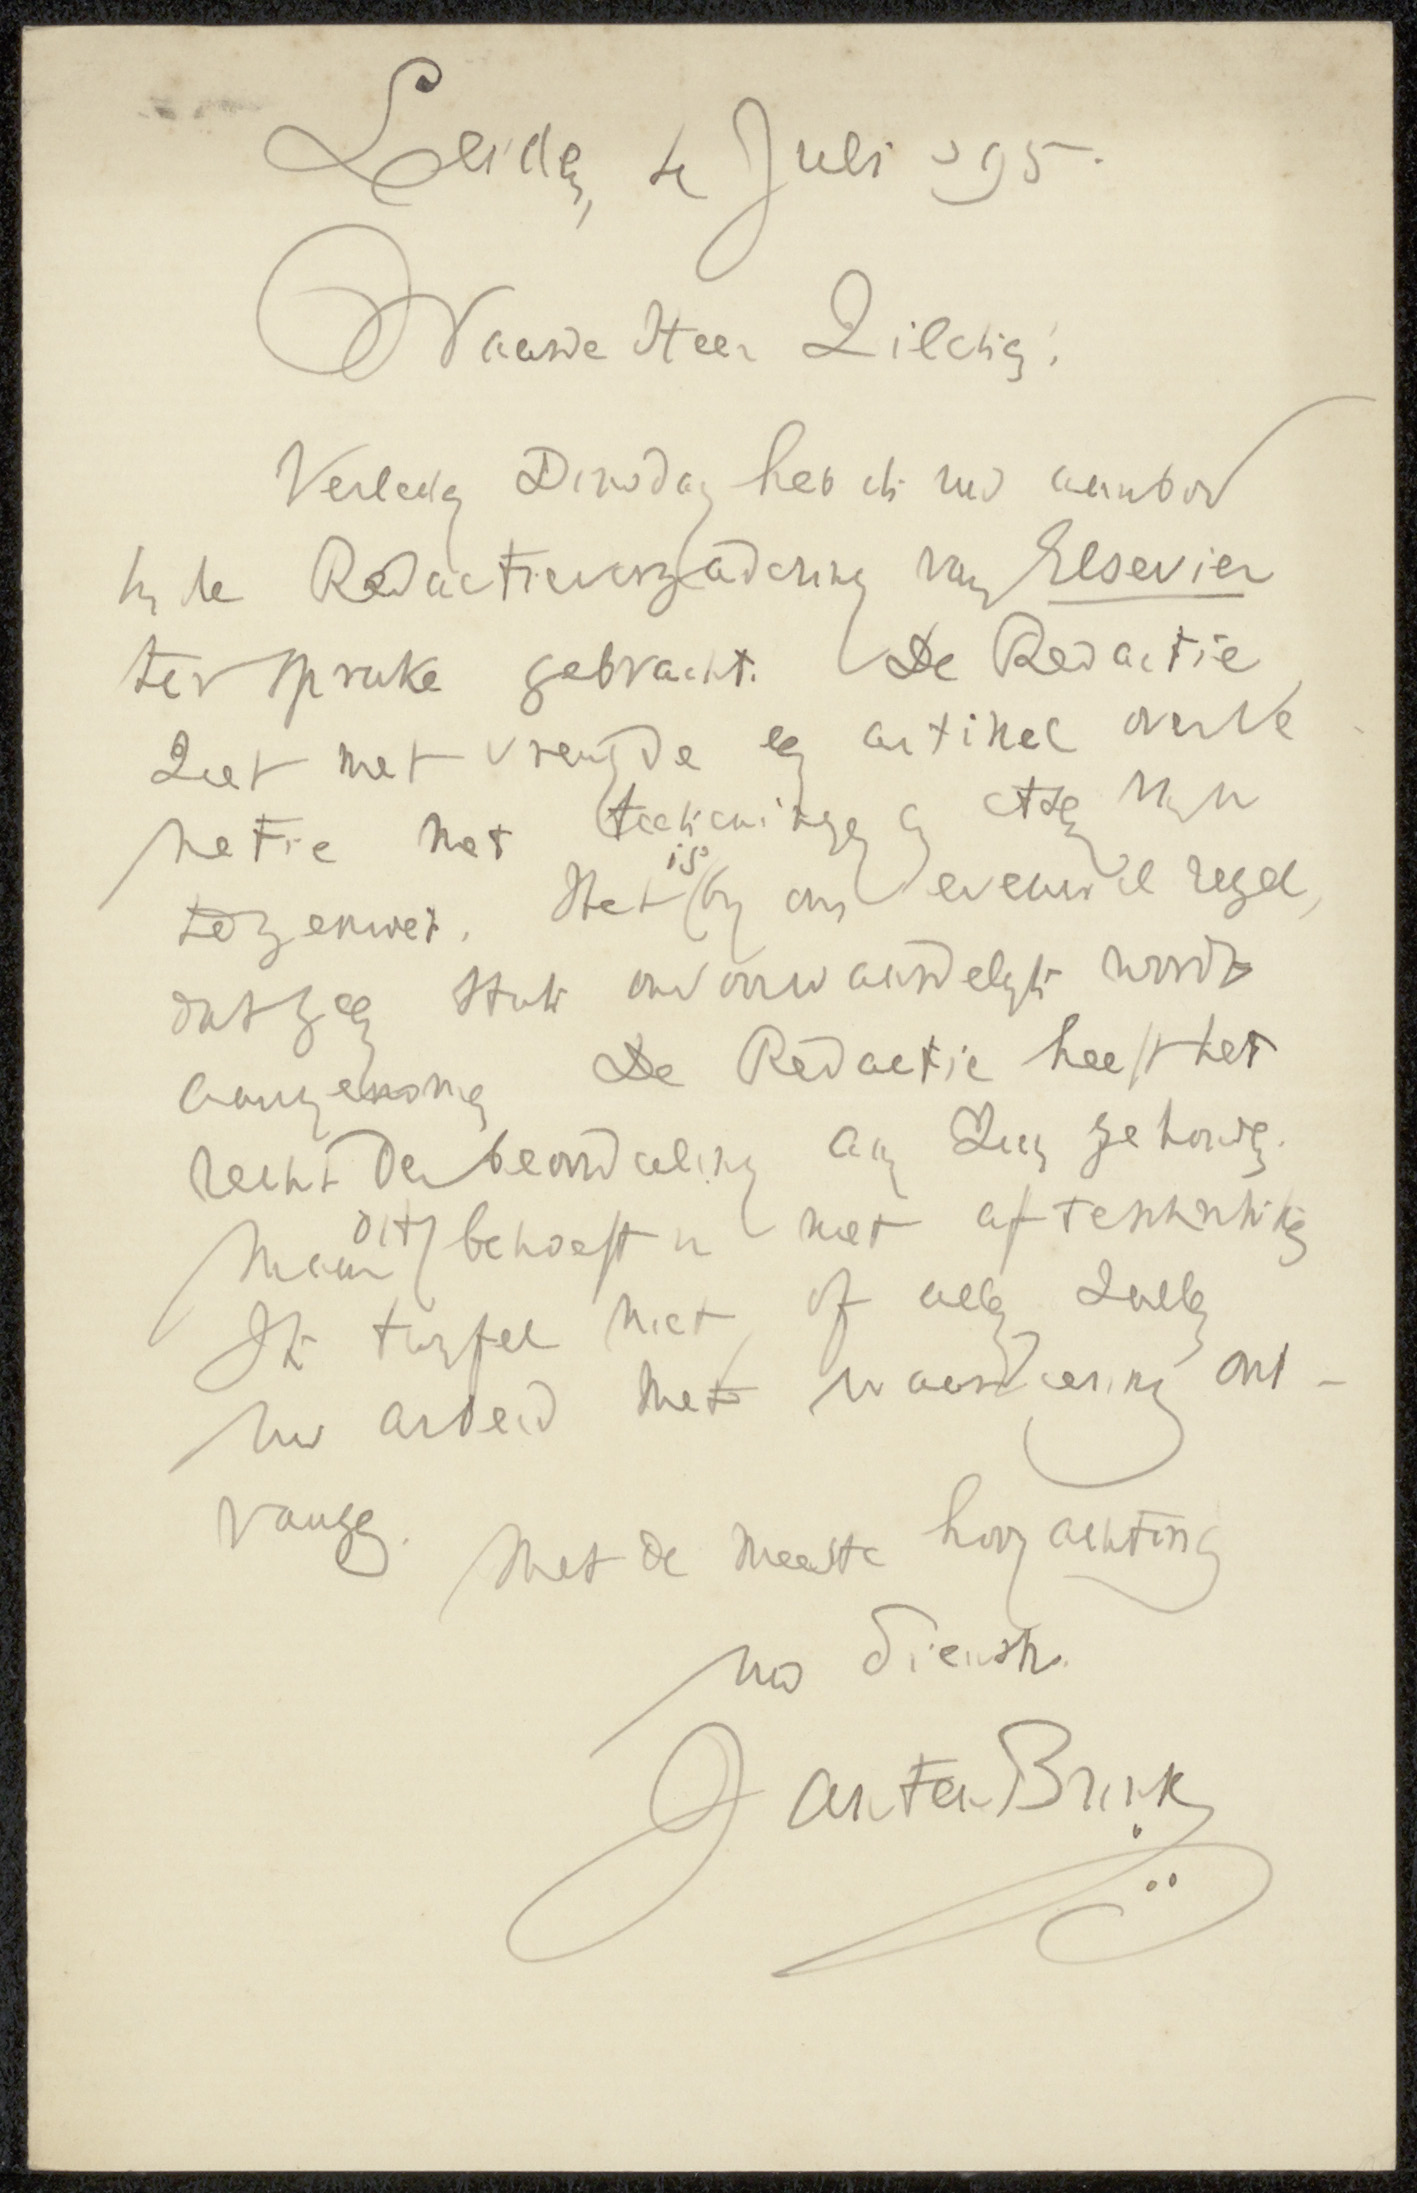 Leiden, 4 Juli '95.
Waarde Heer Zilcken!
Verleden Dinsdag heb ik uw aanbod
in de Redactievergadering van Elsevier
ter sprake gebracht. De Redactie
ziet met vreugde een artikel over Ve
netie met teekeningen en etsen van u
tegemoet. Het is bij ons evenwel regel,
dat geen stuk onvoorwaardelijk wordt
aangenomen. De Redactie heeft het
recht der beoordeeling aan zich gehouden.
Maar dit behoeft u niet af te schrikken
Ik twijfel niet, of allen zullen
uw arbeid met waardeering ont-
vangen.
Met de meeste hoogachting
uw dienstv.
Jan ten Brink